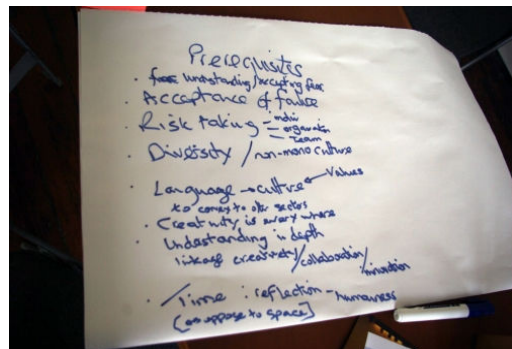 Prerequisites
· understanding/accepting fear
· Acceptance of failure
· Risk taking = indiv
= organisation
= Team
· Diversity / non-mono culture
· Language → culture ← Values
to connect to other sectors
· Creativity is every where
· Understanding in depth
linkage creativity/collaboration/innovation
· Time : reflection - humanness
[as suppose to space]